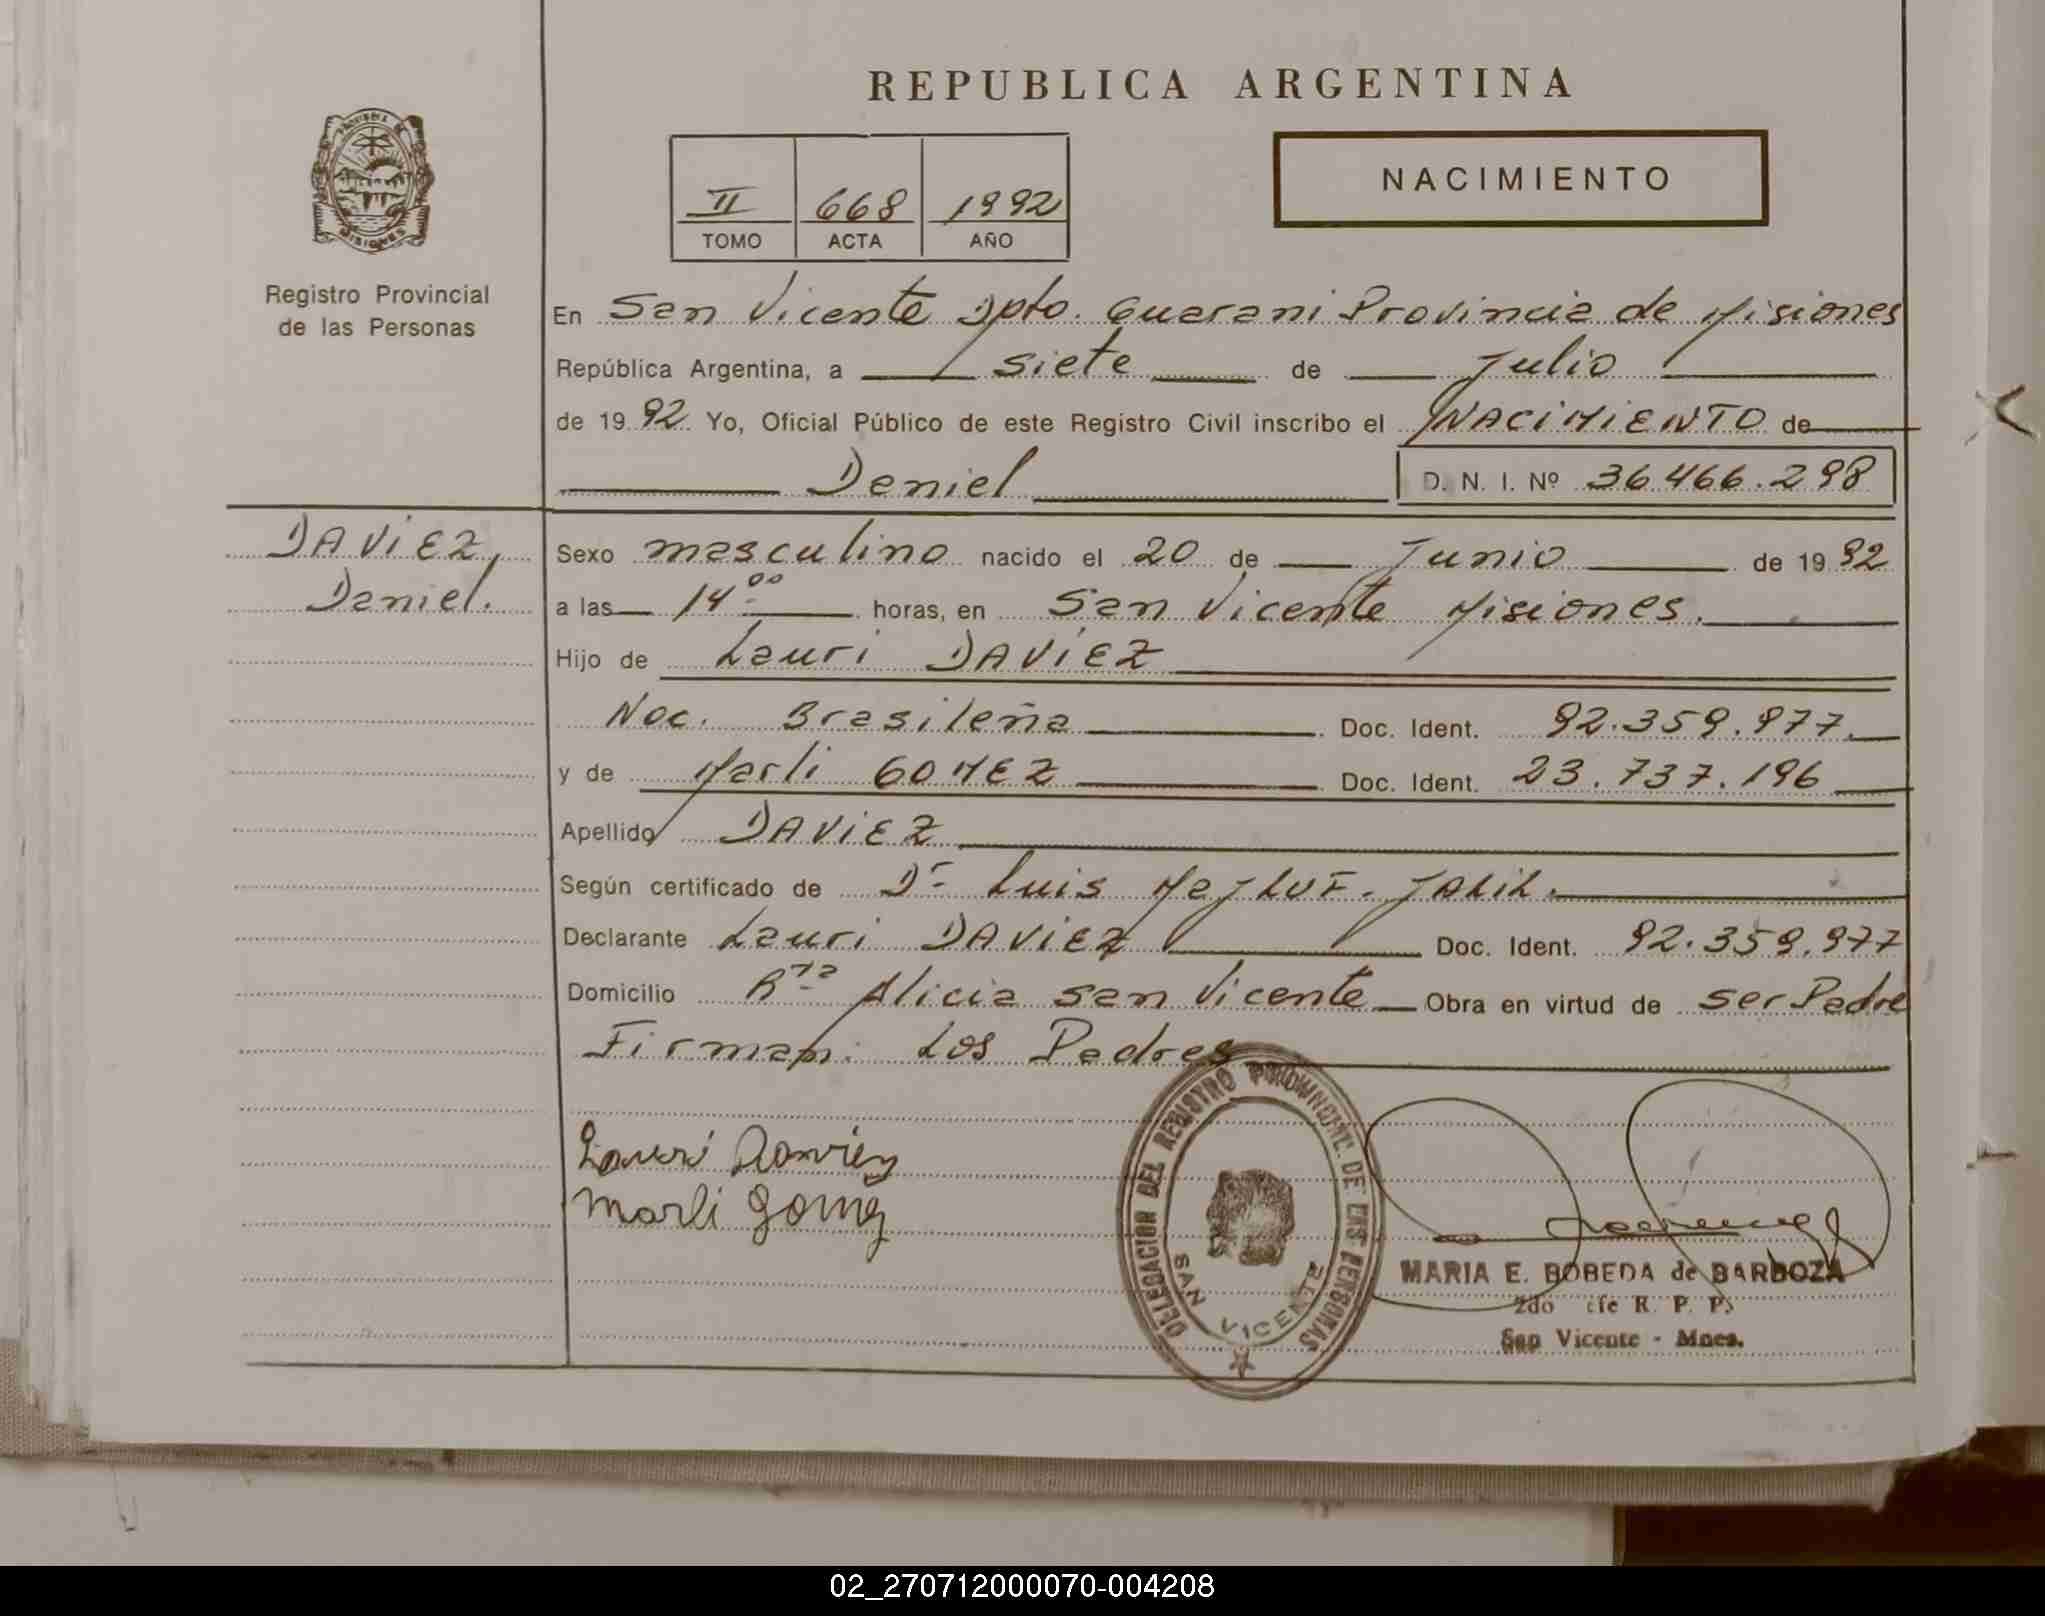 REPUBLICA ARGENTINA
PROVINCIA DE
MISIONES
Registro Provincial
de las Personas
II 668 1992
TOMO ACTA AÑO
NACIMIENTO
En San Vicente Dpto. Guarani Provincia de Misiones
República Argentina, a siete de Julio
de 1992. Yo, Oficial Público de este Registro Civil inscribo el NACIMIENTO de
Daniel D. N. I. Nº 36.466.298
DAVIEZ,
Daniel.
Sexo masculino nacido el 20 de Junio de 1992
a las 14 00 horas, en San Vicente Misiones.
Hijo de Lauri DAVIEZ
Nac. Brasileña Doc. Ident. 92.359.977.
y de Marli GOMEZ Doc. Ident. 23.737.196
Apellido DAVIEZ
Según certificado de Dr Luis MajLUF. JALIL.
Declarante Lauri DAVIEZ Doc. Ident. 92.359.977
Domicilio Rta Alicia San Vicente Obra en virtud de ser Padre
Firman: Los Padres
Lauri Daviez
Marli Gomez
DELEGACION DEL REGISTRO PROVINCIAL DE LAS PERSONAS
SAN VICENTE
MARIA E. BOBEDA de BARBOZA
2do R. P. P.
San Vicente - Mnes.
02_270712000070-004208